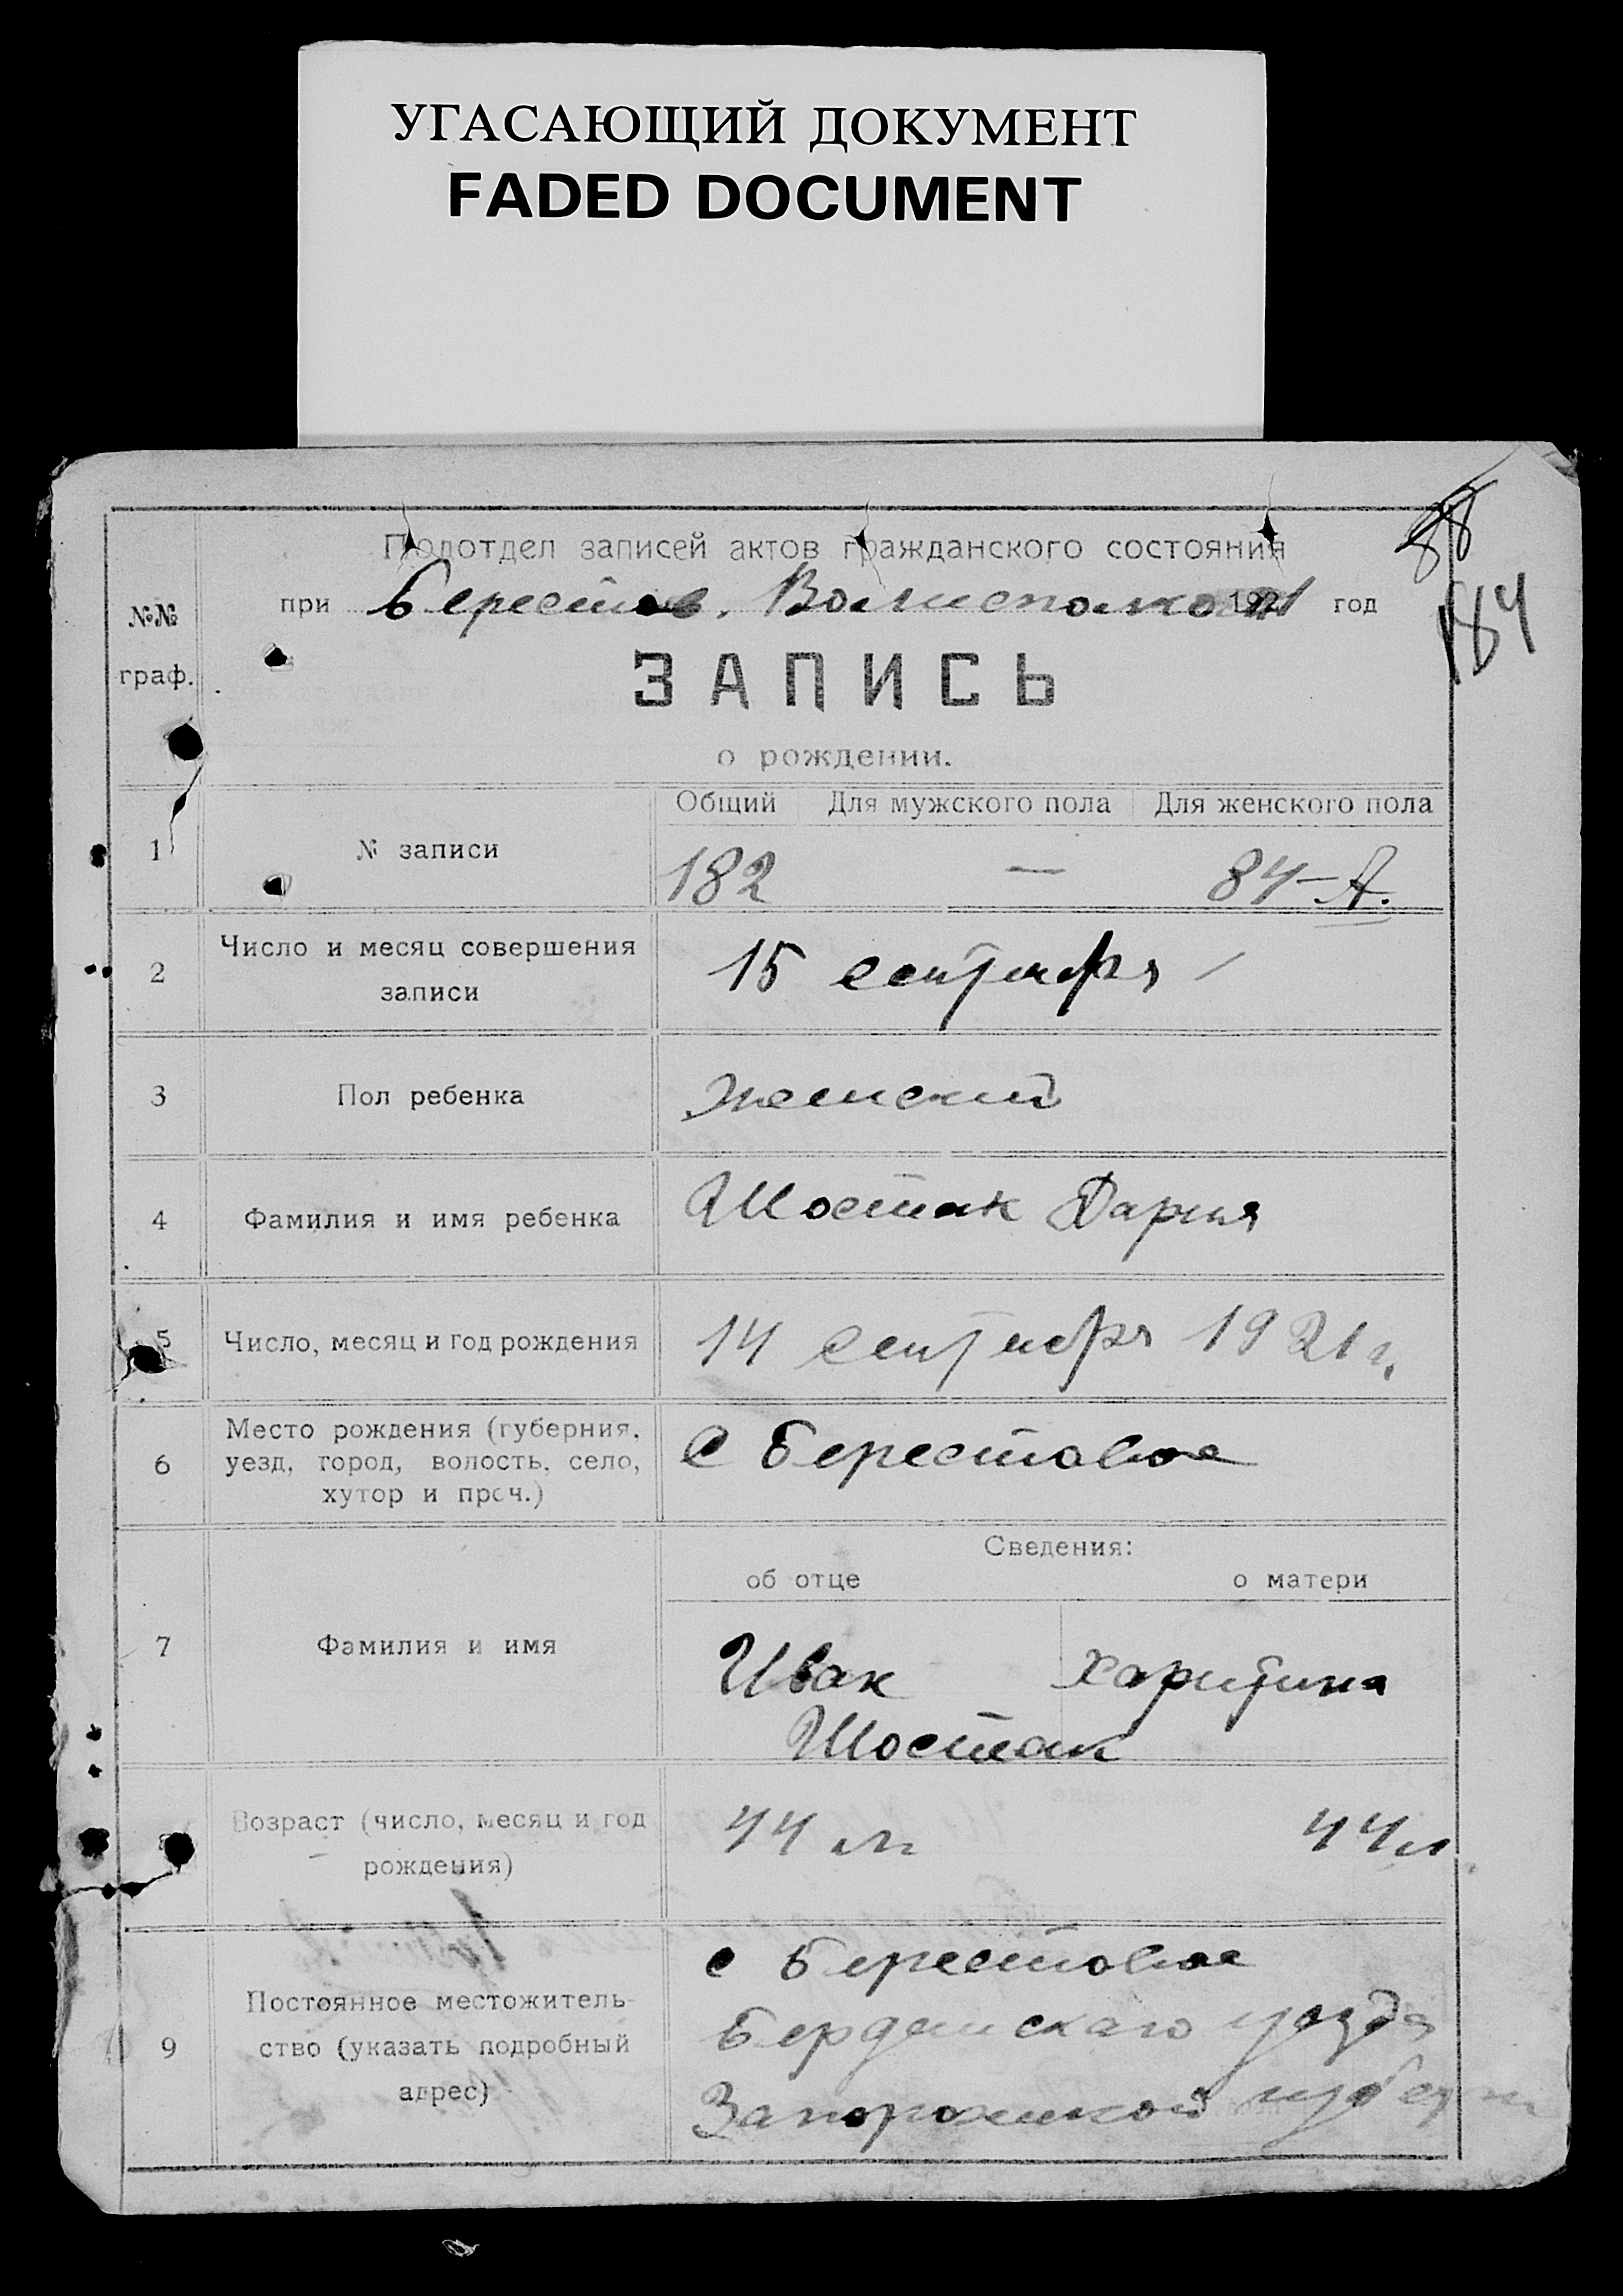 УГАСАЮЩИЙ ДОКУМЕНТ
FADED DOCUMENT
88
184
№№ граф.
Подотдел записей актов гражданского состояния
при Берестов. Волисполкоме 1921 год
ЗАПИСЬ
о рождении.
Общий Для мужского пола Для женского пола
1 № записи 182 — 84-А.
2 Число и месяц совершения записи 15 сентября
3 Пол ребенка Женский
4 Фамилия и имя ребенка Шостак Дария
5 Число, месяц и год рождения 14 сентября 1921 г.
6 Место рождения (губерния, уезд, город, волость, село, хутор и проч.) С Берестовое
Сведения:
об отце о матери
7 Фамилия и имя Ивак Харитина
Шостак
Возраст (число, месяц и год рождения) 44 л. 44 л.
9 Постоянное местожительство (указать подробный адрес) с Берестовое
Бердянскаго уезда
Запорожской губерн